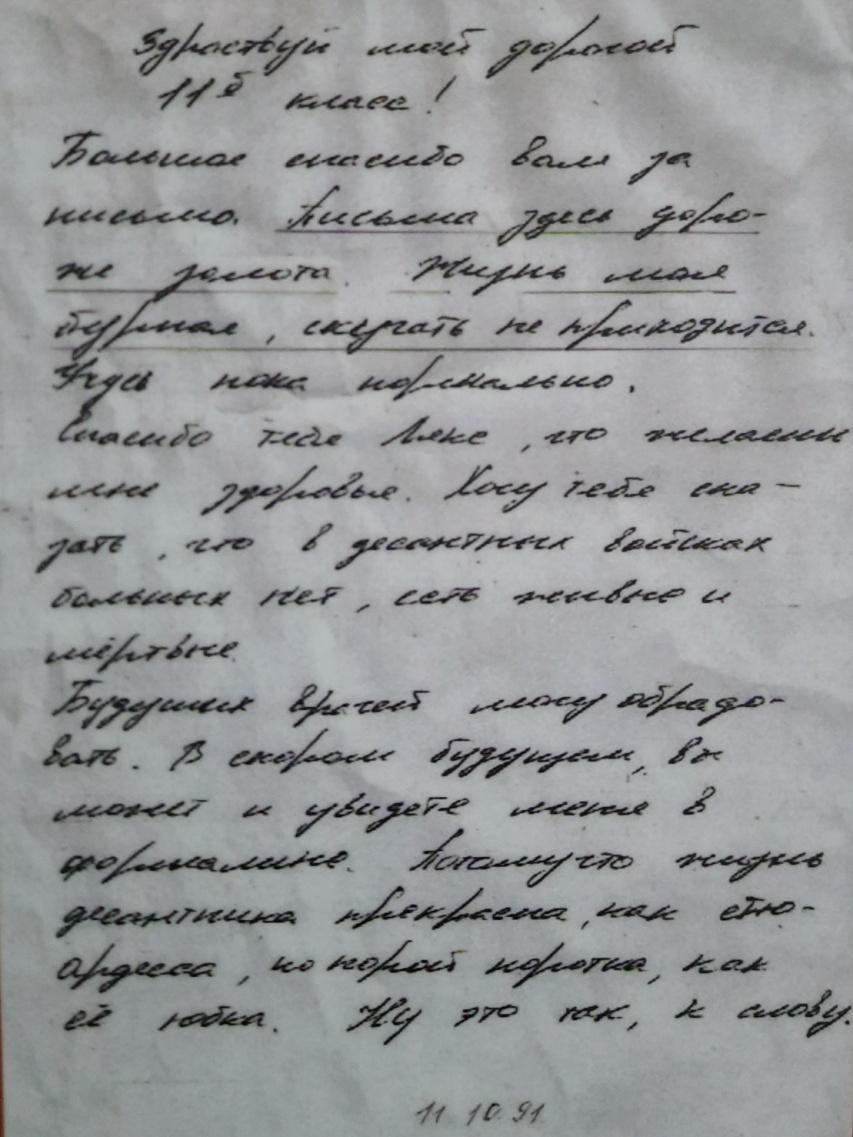 Здраствуй мой дорогой
11 б класс!
Большое спасибо вам за
письмо. Письма здесь доро-
же золота. Жизнь моя
бурная, скучать не приходится.
Чудь пока нормально.
Спасибо тебе Алекс, что желаешь
мне здоровья. Хочу тебе ска-
зать, что в десантных войсках
больных нет, есть живые и
мёртвые.
Будущих врачей могу обрадо-
вать. В скором будущем, вы
может и увидете меня в
формалине. Потому что жизнь
десантника прекрасна, как стю-
ардесса, но порой коротка, как
её юбка. Ну это так, к слову.
11.10.91